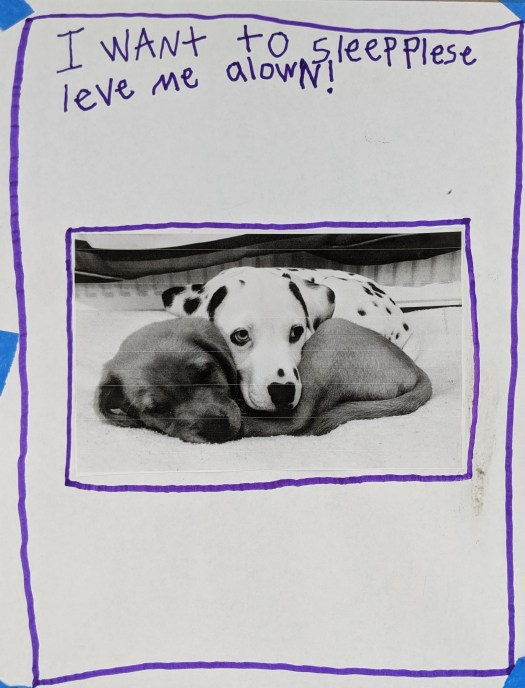 I WANt tO sleep plese
leve me alowN!